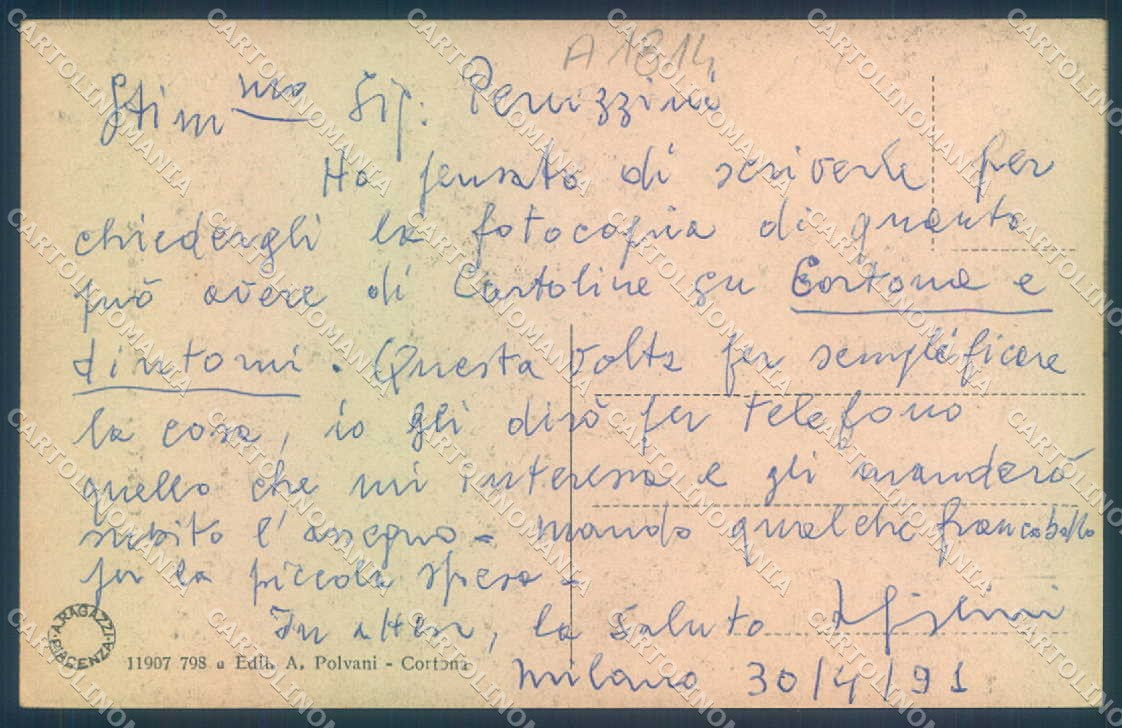 A1814
Stim mo Sig. Peruzzini
Ho pensato di scriverle per
chiedergli la fotocopia di quanto
può avere di Cartoline su Cortona e
dintorni. Questa volta per semplificare
la cosa, io gli dirò per telefono
quello che mi interessa e gli manderò
subito l'assegno - mando qualche francobollo
per la piccola spesa -
In attesa, la saluto
Milano 30/4/91
A. RAGAZZI PIACENZA
11907 798 a Edit. A. Polvani - Cortona
CARTOLINOMANIA